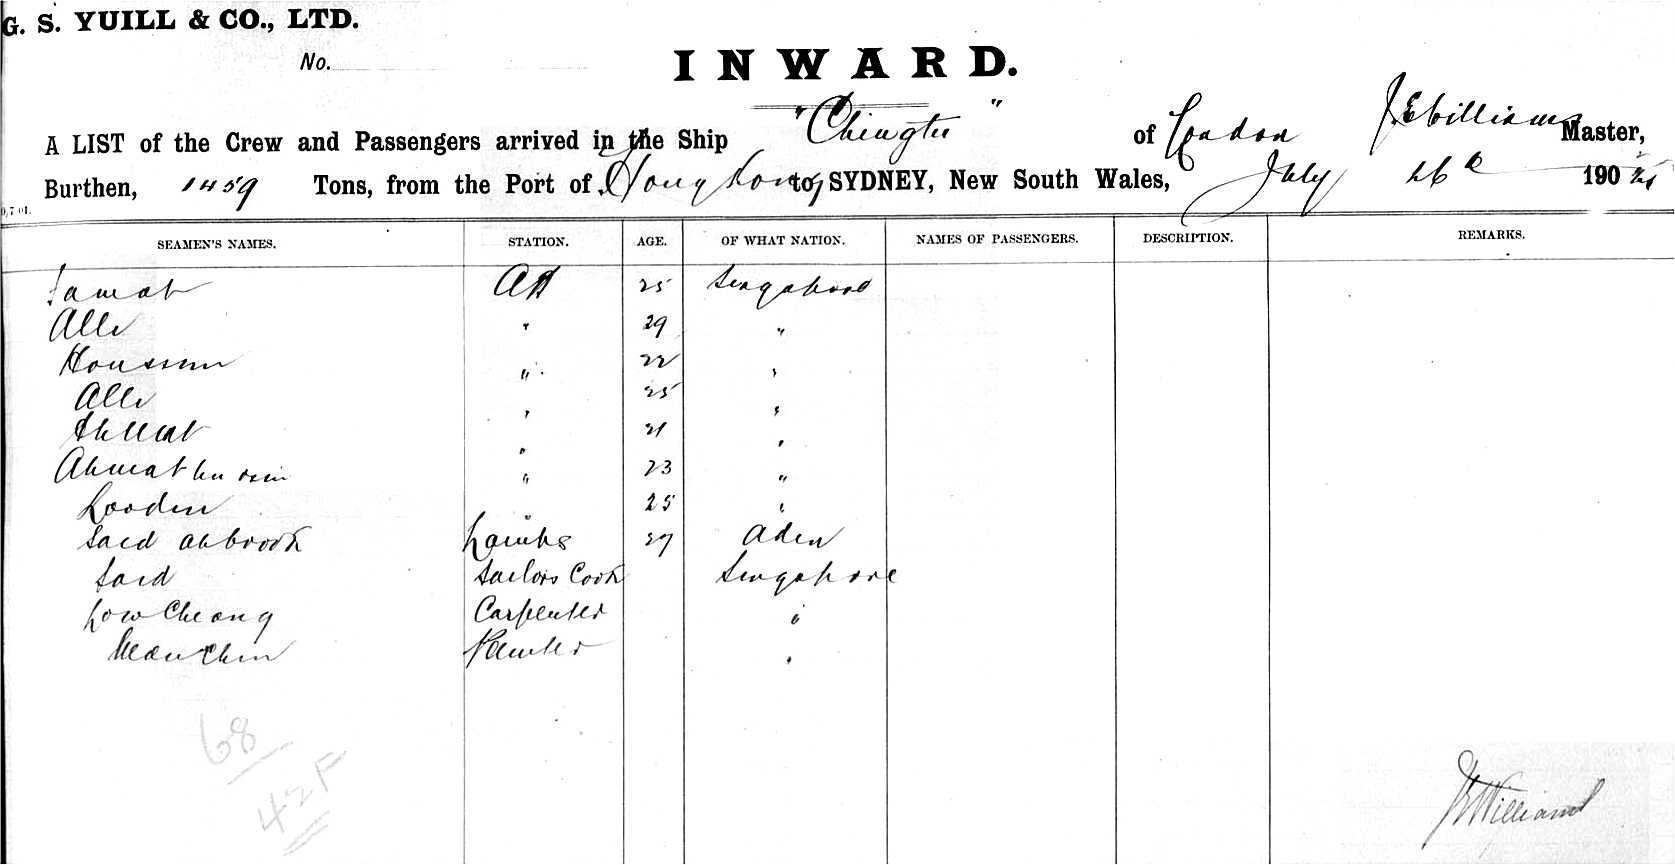 G. S. YUILL & CO., LTD.
No.
INWARD.
A LIST of the Crew and Passengers arrived in the Ship "Chingtu" of London J. E. Williams Master,
Burthen, 1459 Tons, from the Port of Hong Kong to SYDNEY, New South Wales, July 26th 190
SEAMEN'S NAMES. STATION. AGE. OF WHAT NATION. NAMES OF PASSENGERS. DESCRIPTION. REMARKS.
Samat AB 25 Singapore
Alli " 29 "
Houssin " 22 "
Alli " 25 "
" 21 "
Ahmat bu ssin " 23 "
" 25 "
Said Lamps 27 Aden
Said Sailors Cook Singapore
Low Cheong Carpenter "
Chin Painter "
68
42F
Williams